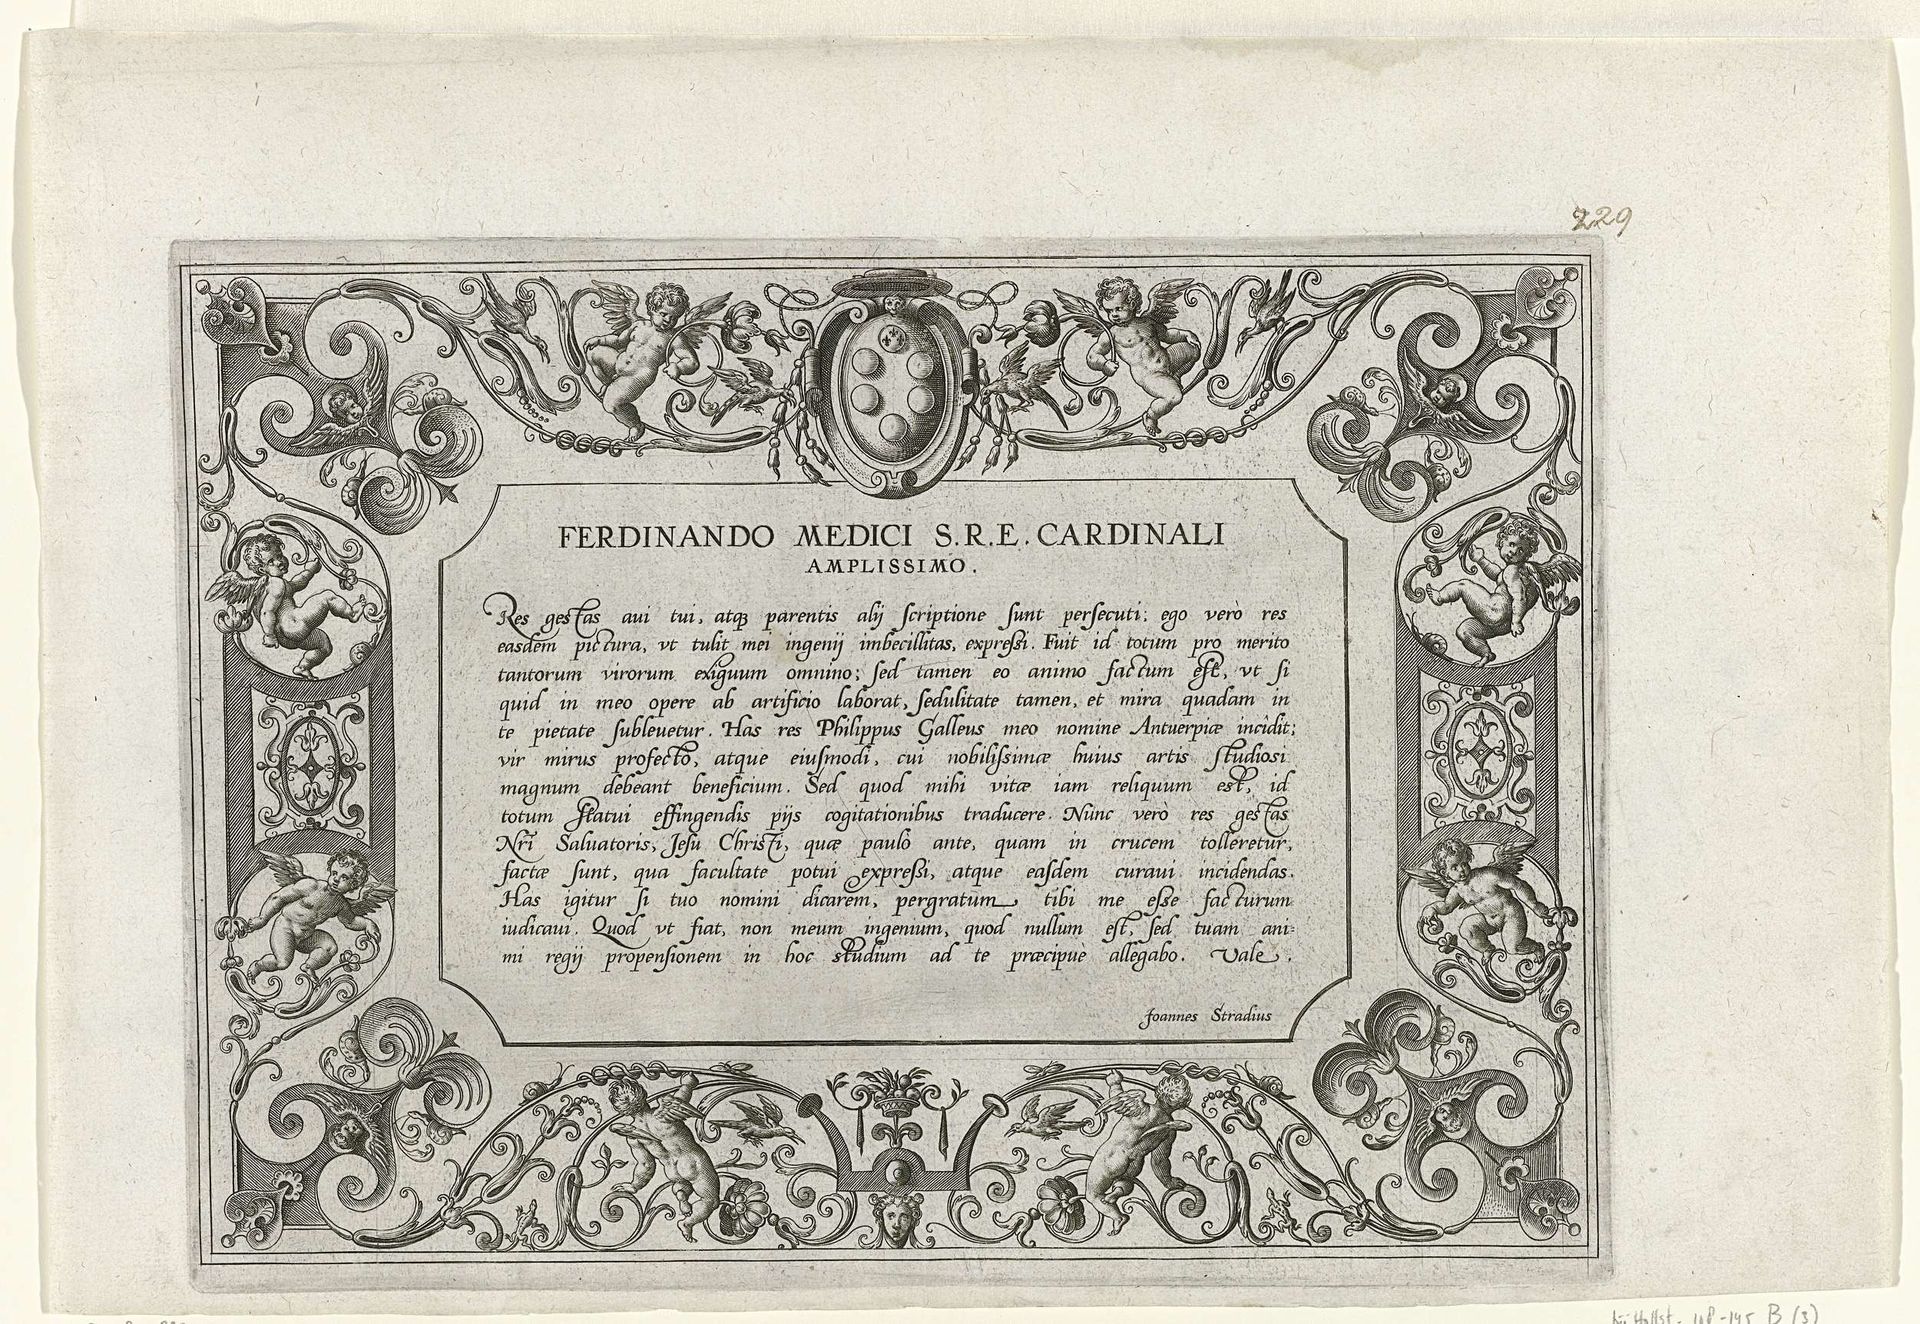 229
FERDINANDO MEDICI S.R.E. CARDINALI
AMPLISSIMO.
Res gestas aui tui, atqꝫ parentis alij ſcriptione ſunt perſecuti; ego verò res
easdem pictura, vt tulit mei ingenij imbecillitas, expreſsi. Fuit id totum pro merito
tantorum virorum exiguum omnino; ſed tamen eo animo factum eſt, vt ſi
quid in meo opere ab artificio laborat, ſedulitate tamen, et mira quadam in
te pietate ſubleuetur. Has res Philippus Galleus meo nomine Antuerpiæ incidit;
vir mirus profecto, atque eiuſmodi, cui nobiliſsimæ huius artis ſtudiosi
magnum debeant beneficium. Sed quod mihi vitæ iam reliquum est, id
totum ſtatui effingendis pijs cogitationibus traducere. Nunc verò res gestas
Nr̃i Saluatoris, Jeſu Christi, quæ paulò ante, quam in crucem tolleretur,
factæ ſunt, qua facultate potui expreſsi, atque eaſdem curaui incidendas.
Has igitur ſi tuo nomini dicarem, pergratum tibi me eſse facturum
iudicaui. Quod vt fiat, non meum ingenium, quod nullum eſt, ſed tuam ani⸗
mi regij propenſionem in hoc ſtudium ad te præcipuè allegabo. Vale.
Joannes Stradius
B (3)